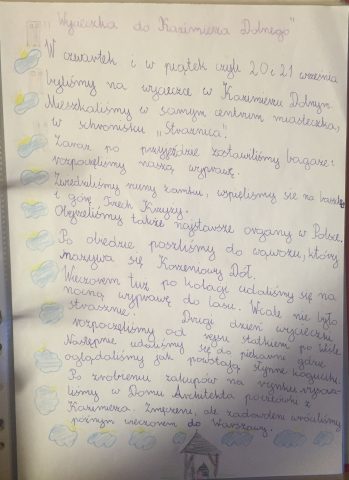 "Wycieczka do Kazimierza Dolnego"
W czwartek i w piątek czyli 20 i 21 września
byliśmy na wycieczce w Kazimierzu Dolnym.
Mieszkaliśmy w samym centrum miasteczka,
w schronisku "Strażnica".
Zaraz po przyjeździe zostawiliśmy bagaże i
rozpoczęliśmy naszą wyprawę.
Zwiedziliśmy ruiny zamku, wspięliśmy się na basztę
i górę Trzech Krzyży.
Obejrzeliśmy także najstarsze organy w Polsce.
Po obiedzie poszliśmy do wąwozu, który
nazywa się Korzeniowy Dół.
Wieczorem tuż po kolacji udaliśmy się na
nocną wyprawę do lasu. Wcale nie było
strasznie. Drugi dzień wycieczki
rozpoczęliśmy od rejsu statkiem po Wiśle.
Następnie udaliśmy się do piekarni gdzie
oglądaliśmy jak powstają słynne koguciki.
Po zrobieniu zakupów na rynku, wysła-
liśmy w Domu Architekta pocztówki z
Kazimierza. Zmęczeni, ale zadowoleni wróciliśmy
późnym wieczorem do Warszawy.